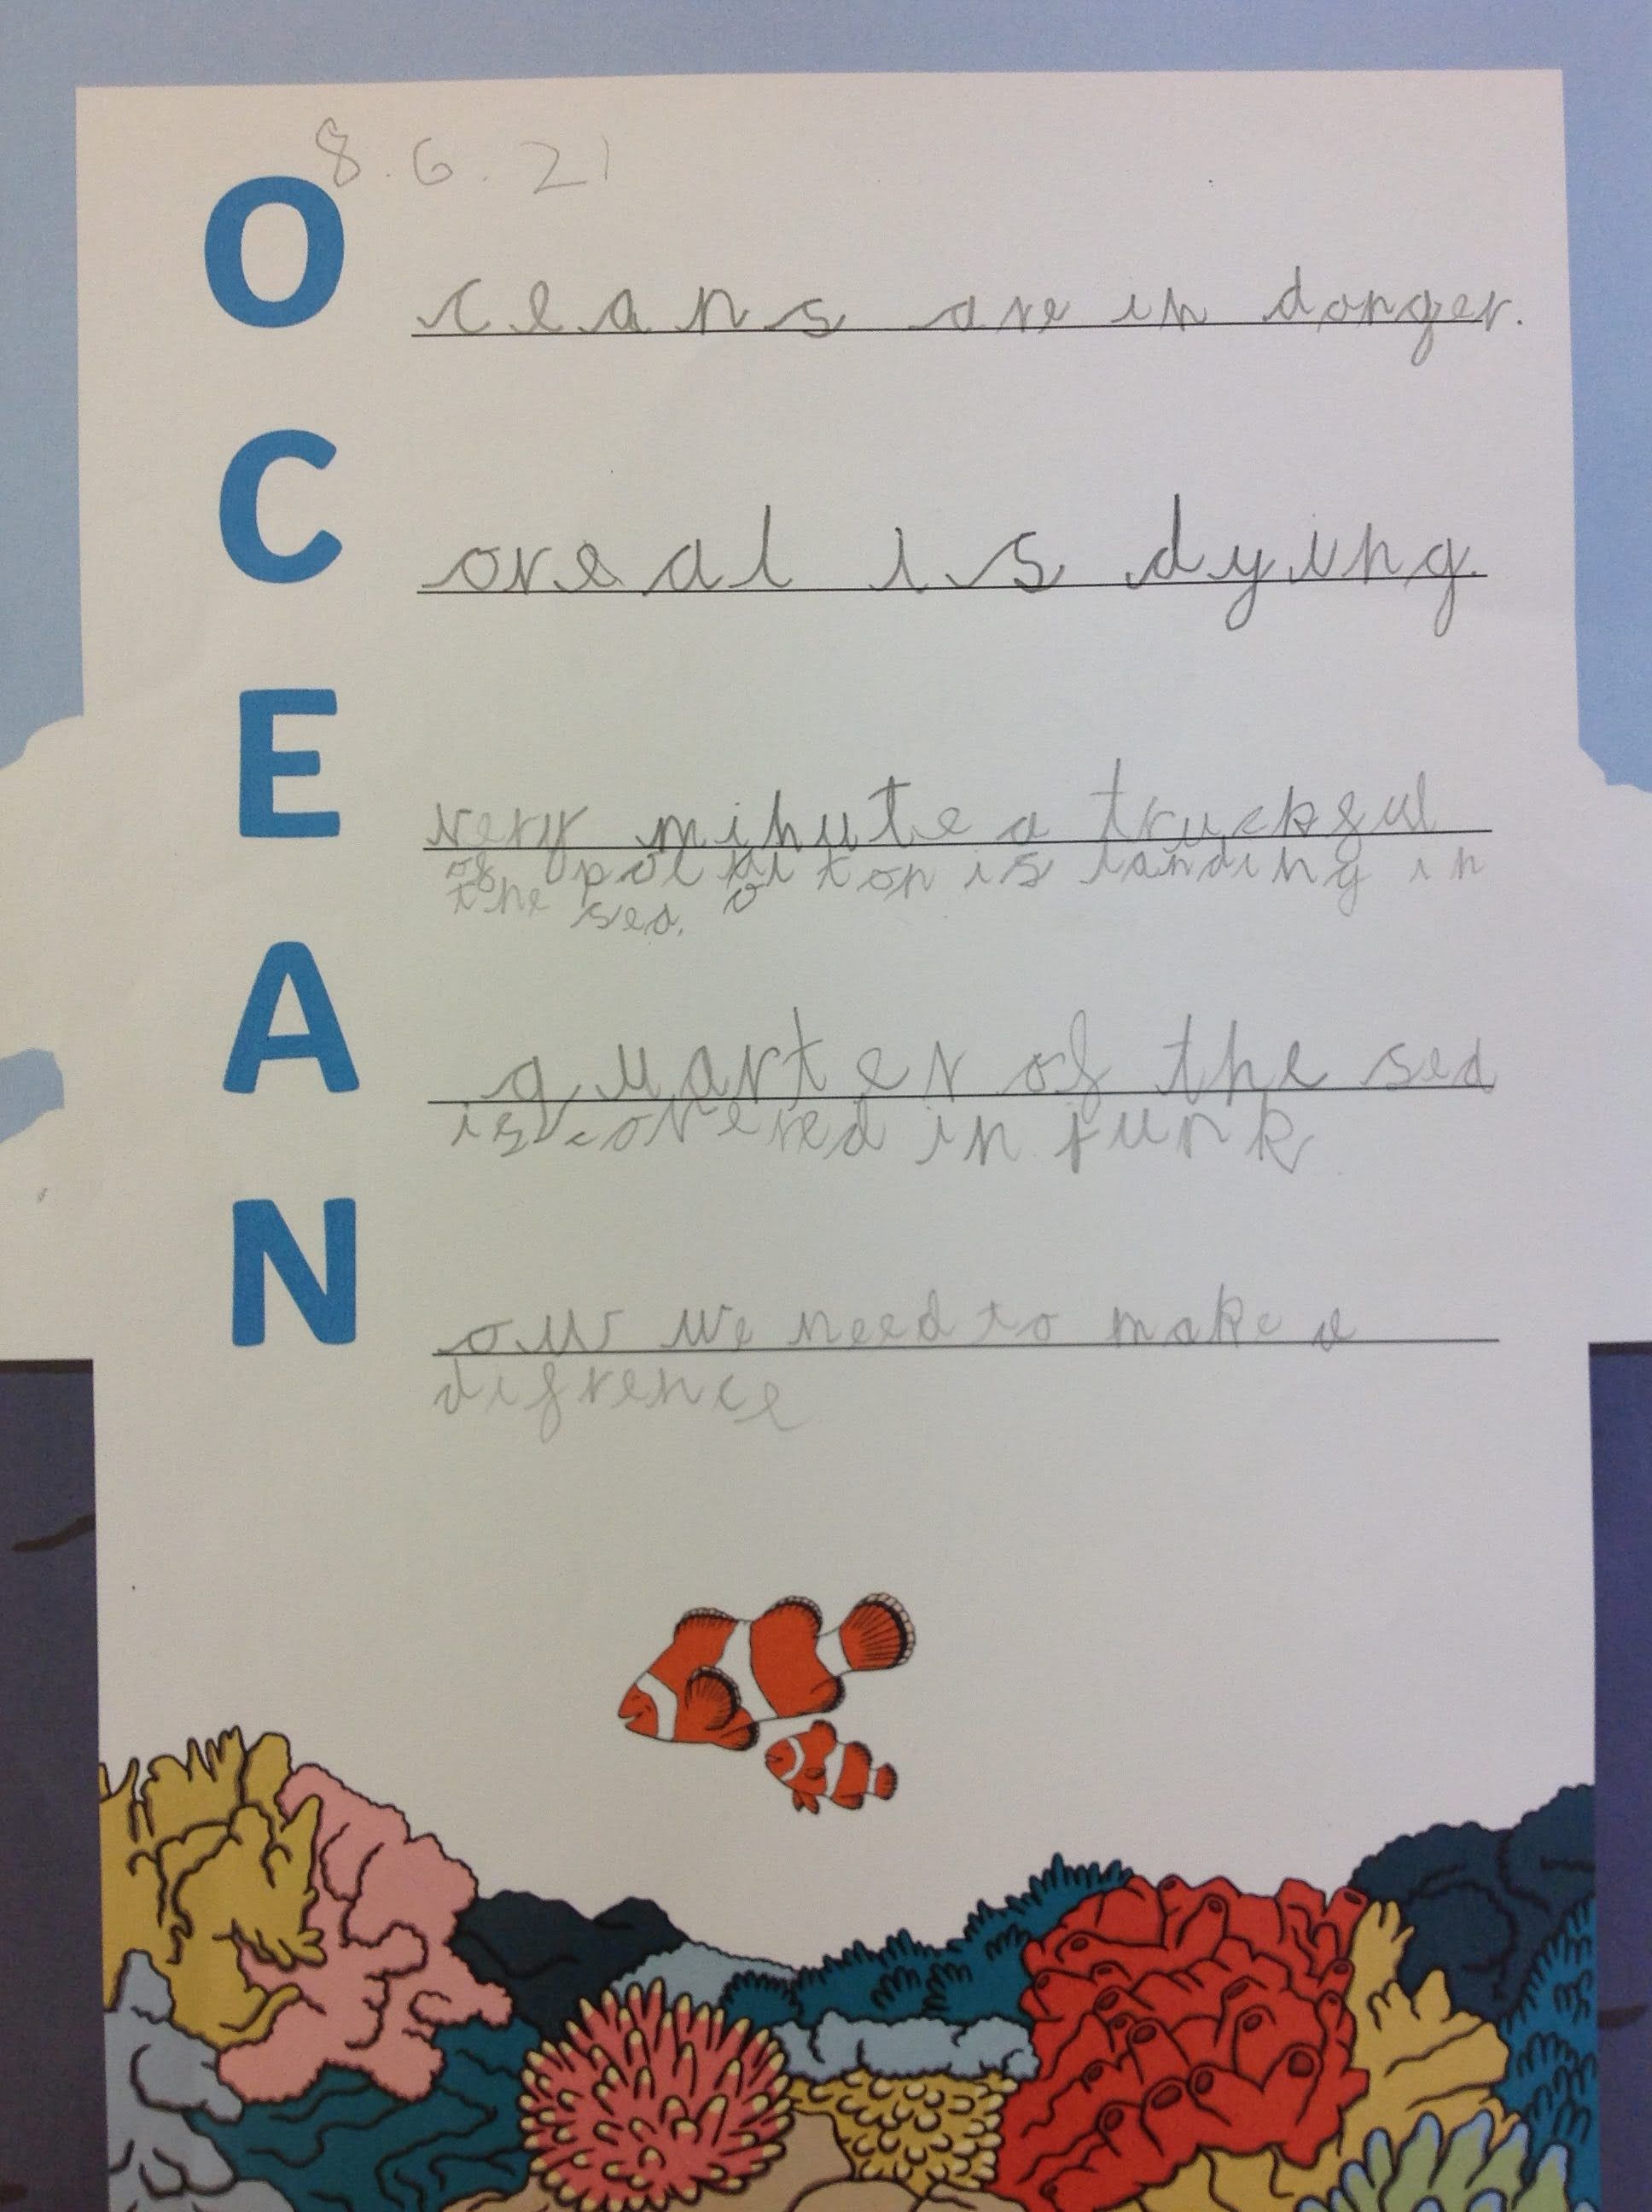 8.6.21
Oceans are in danger.
Coreal is dying.
Every minute a truckful
of pollution is landing in
the sea.
A quarter of the sea
is covered in junk
Now we need to make a
difrence